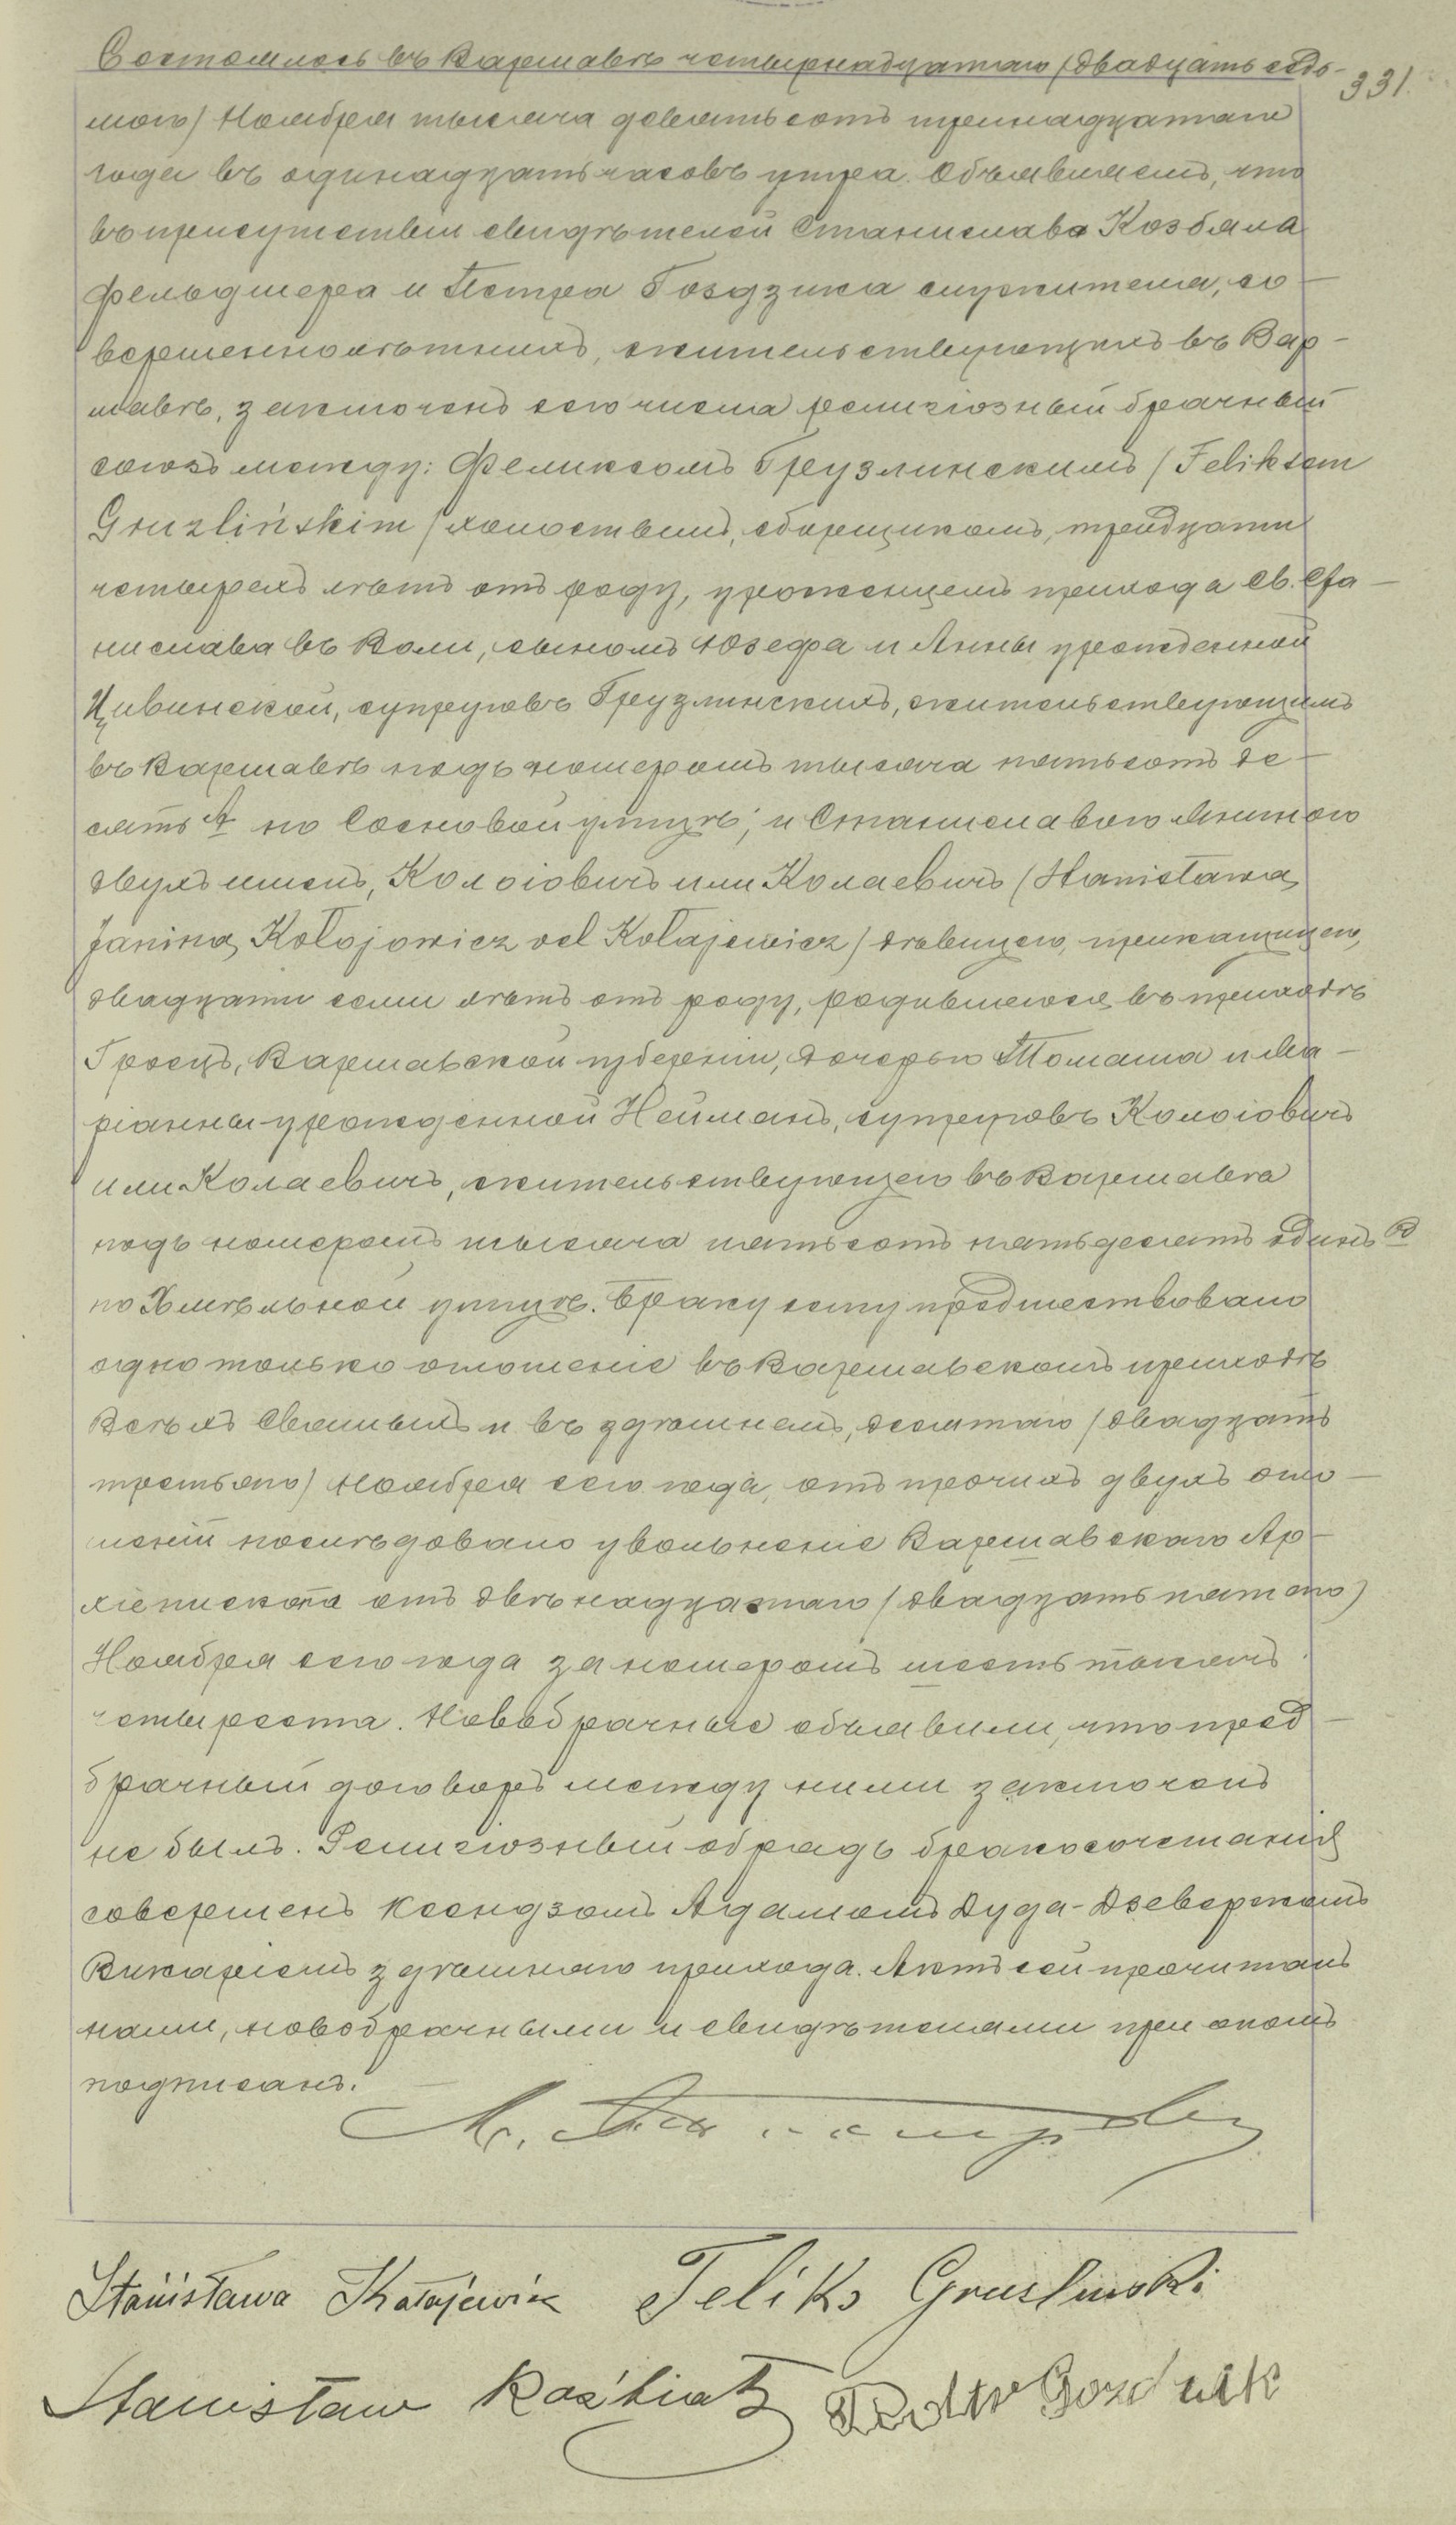 Состоялось въ Варшавѣ четырнадцатаго /двадцать седь-
331.
мого/ Ноября тысяча девятьсотъ тринадцатаго
года въ одинадцать часовъ утра. Объявляемъ, что
въ присутствіи свидѣтелей Станислава Козбяла
фельдшера и Петра Гоздзика служителя, со-
вершеннолѣтнихъ, жительствующихъ въ Вар-
шавѣ, заключенъ сего числа религіозный брачный
союзъ между: Феликсомъ Грузлинскимъ /Feliksem
Gruzlińskim/ холостымъ, сборщикомъ, тридцати
четырехъ лѣтъ отъ роду, уроженцемъ прихода Св. Ста-
нислава въ Воли, сыномъ Юзефа и Анны урожденной
Цивинской, супруговъ Грузлинскихъ, жительствующимъ
въ Варшавѣ подъ номеромъ тысяча пятьсотъ де-
сять А по Сосновой улицѣ; и Станиславою Яниною
двухъ именъ, Колоіовичъ или Колаевичъ (Stanisława
Janina Kołojowicz vel Kołajewicz) дѣвицею, приказчицею,
двадцати семи лѣтъ отъ роду, родившеюся въ приходѣ
Гроецъ, Варшавской губерніи, дочерью Томаша и Ма-
ріанны урожденной Нейманъ, супруговъ Колоіовичъ
или Колаевичъ, жительствующею въ Варшавѣ
подъ номеромъ тысяча пятьсотъ пятьдесятъ одинъ В
по Хмѣльной улицѣ. Браку сему предшествовало
одно только оглошеніе въ Варшавскомъ приходѣ
Всѣхъ Святыхъ и въ здѣшнемъ, десятаго /двадцать
третьяго/ Ноября сего года, отъ прочихъ двухъ огло-
шеній послѣдовало увольненіе Варшавскаго Ар-
хіепископа отъ двѣнадцатаго /двадцать пятаго/
Ноября сего года за номеромъ шесть тысячъ
четыреста. Новобрачные объявили, что пред-
брачный договоръ между ними заключенъ
не былъ. Религіозный обрядъ бракосочетанія
совершенъ Ксендзомъ Адамомъ Дуда-Дзеверскомъ
Викаріемъ здѣшняго прихода. Актъ сей прочитанъ
нами, новобрачными и свидѣтелями при ономъ
подписанъ.
Stanisława Kołajewicz Feliks Gruslinski
Stanisław Koźbiał Piotr Gozdzik